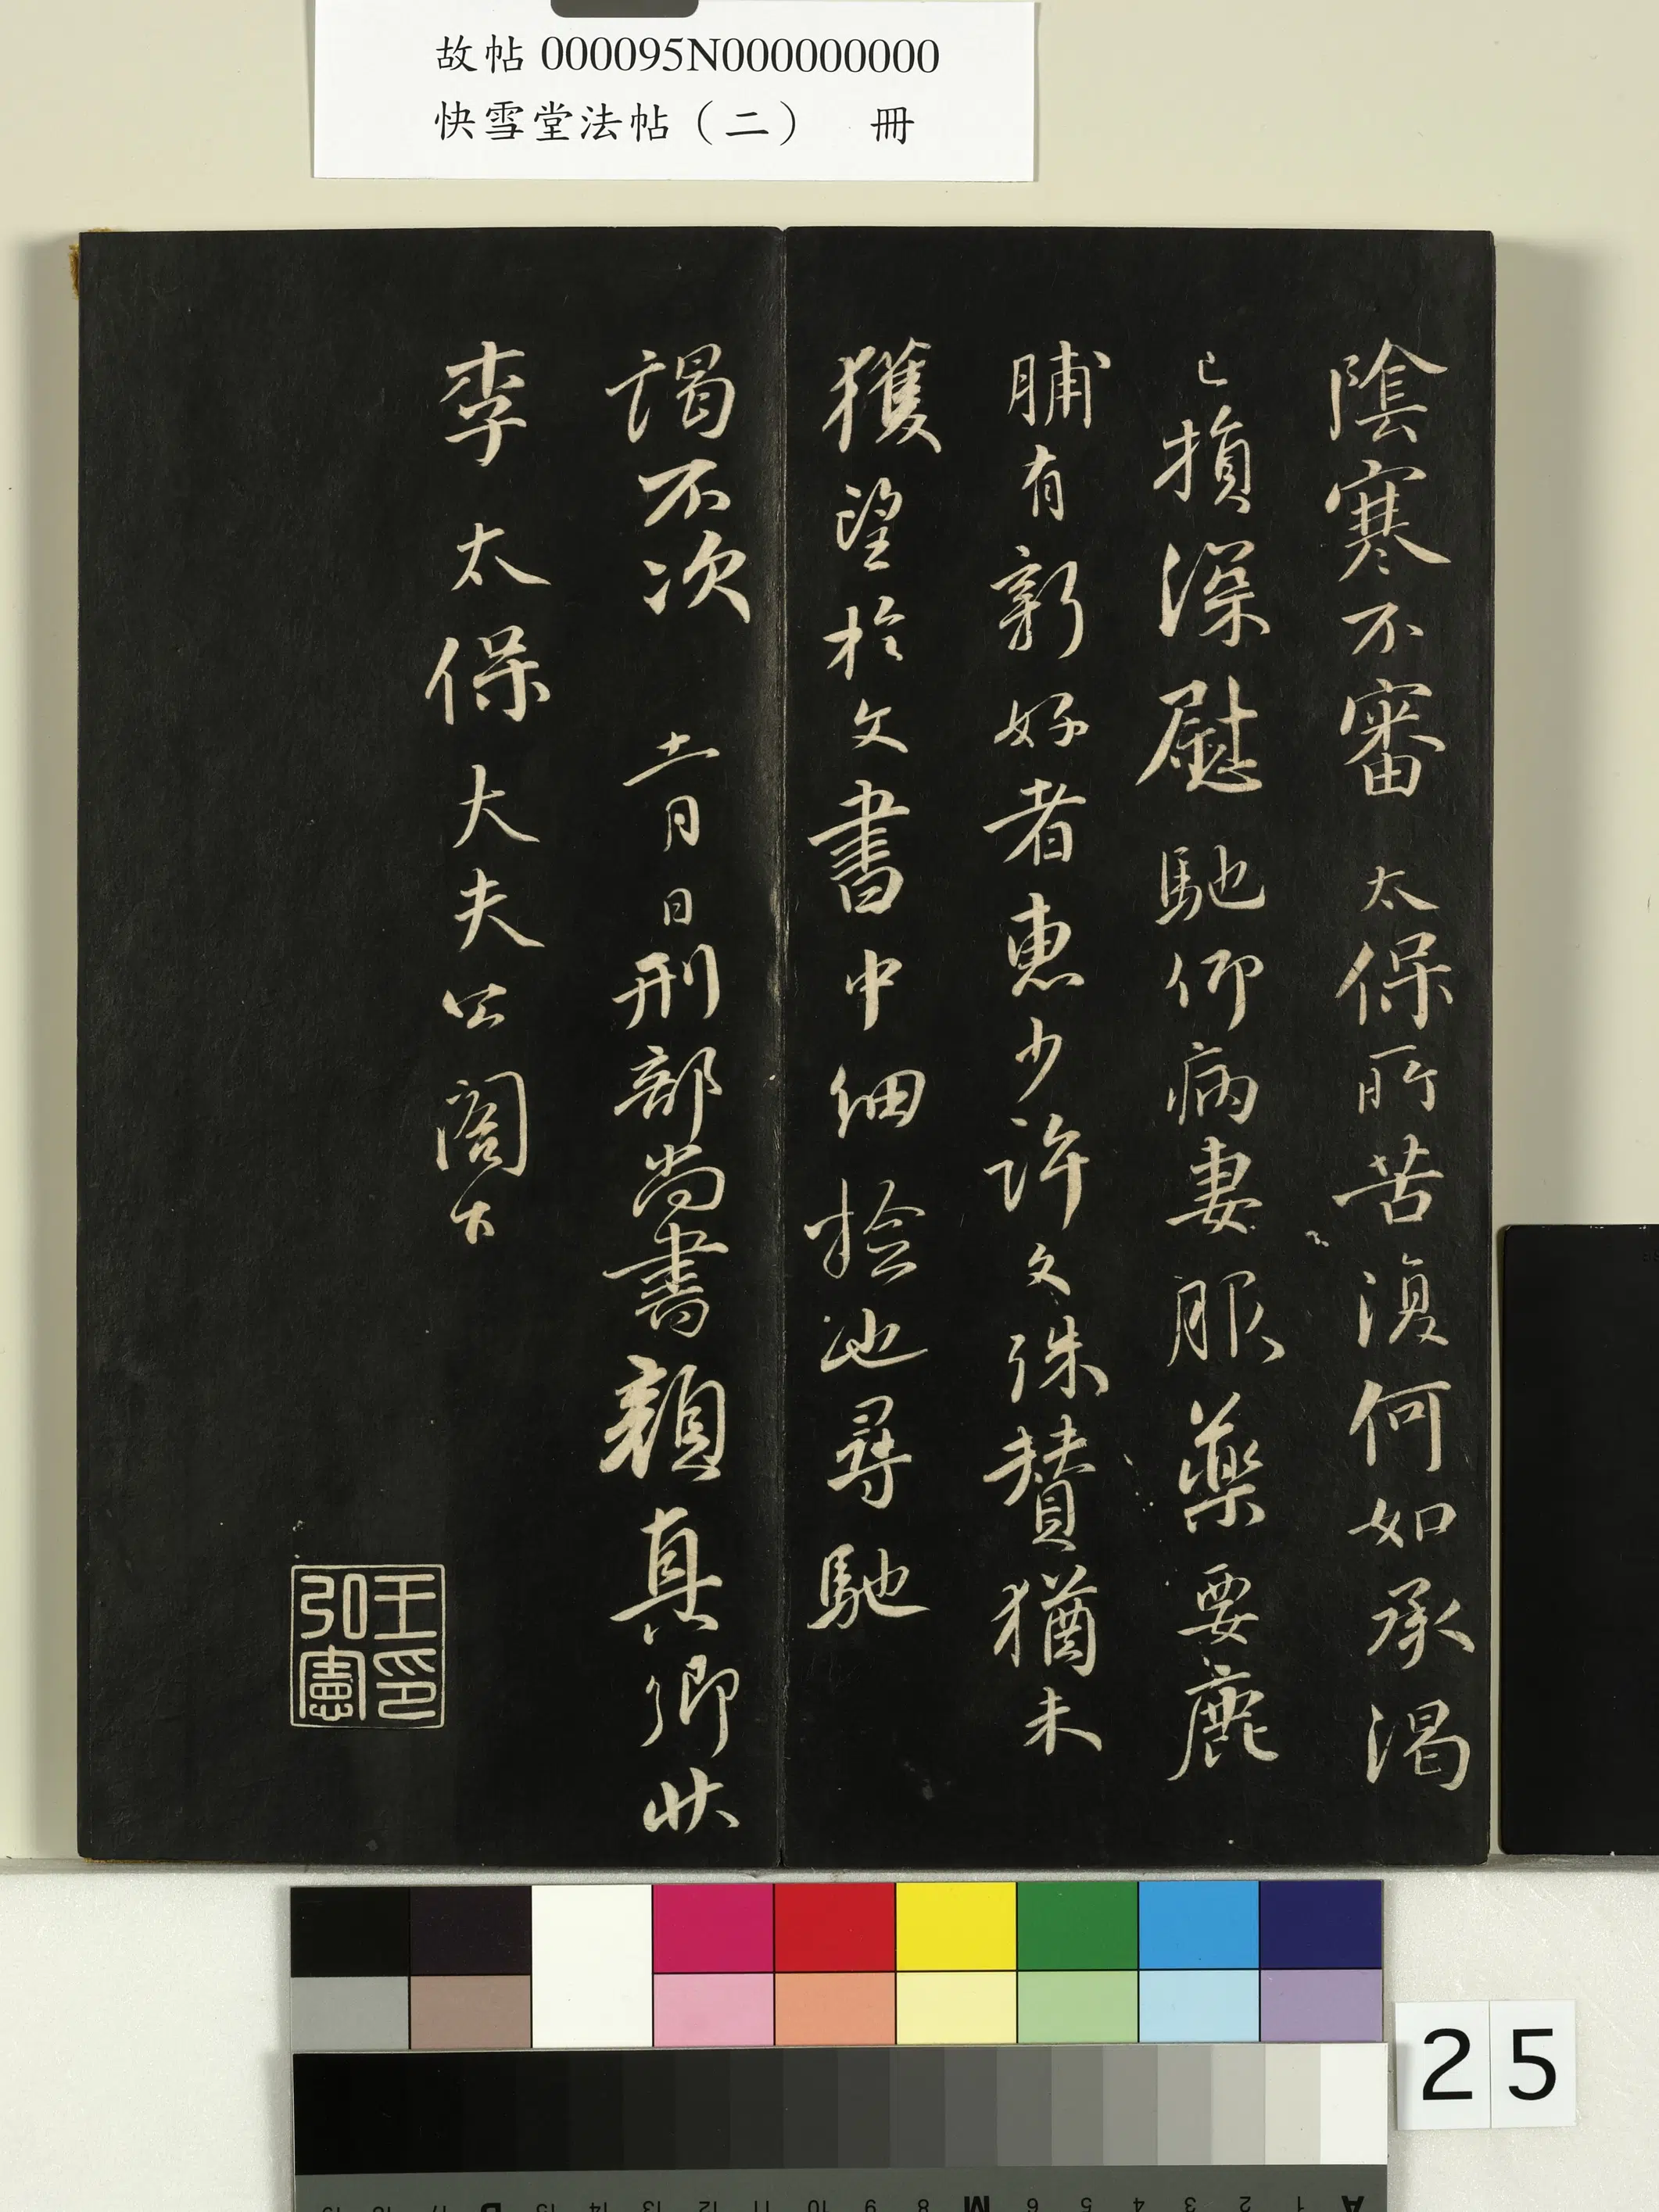 故帖 000095N000000000
快雪堂法帖（二） 冊
陰寒不審 太保所苦復何如承渴
已損深慰馳仰病妻服藥要鹿
脯有新好者惠少許文殊賛猶未
獲望於文書中細撿也尋馳
謁不次 十一月 日刑部尚書顏真卿狀
李太保大夫公閤下
王印弘憲
25